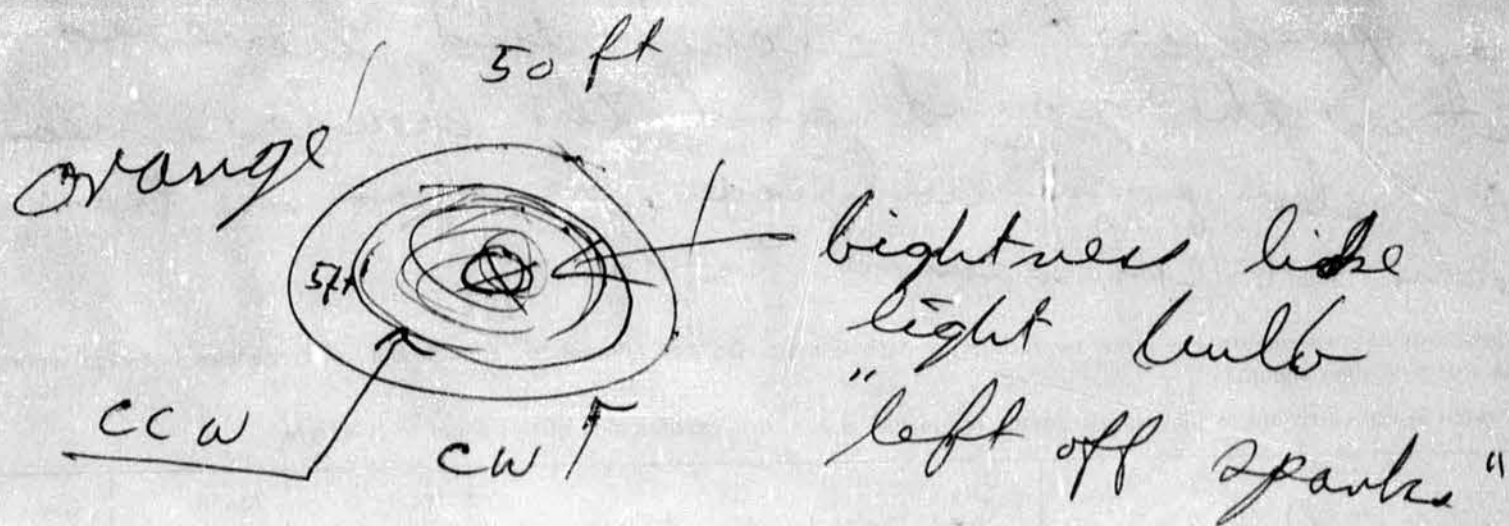 50 ft
orange
5ft
bightness like
light bulb
"left off sparks"
CCW
CW